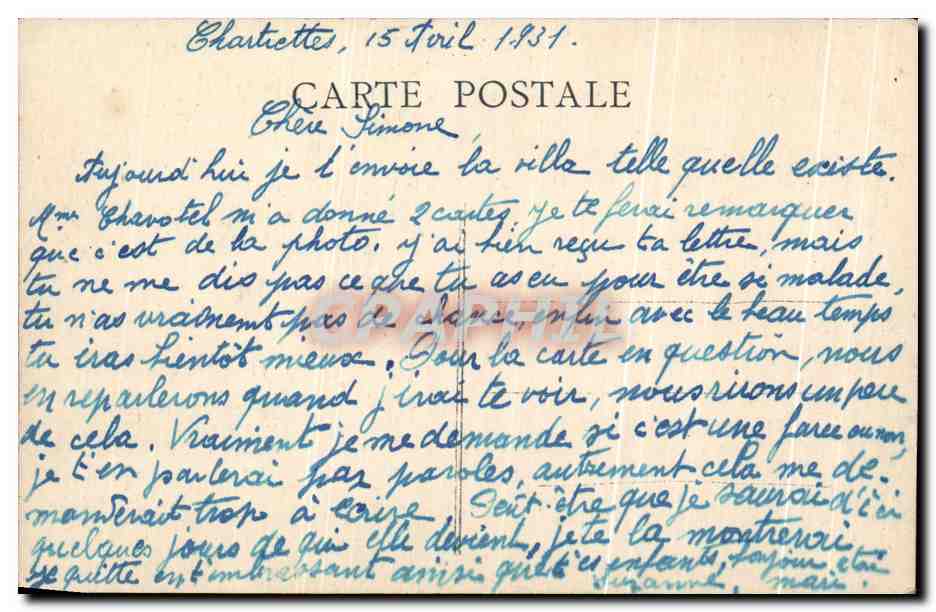 Chartrettes, 15 Avril 1931.
CARTE POSTALE
Chère Simone,
Aujourd'hui je t'envoie la villa telle quelle existe.
Mme Chavotel m'a donné 2 cartes, je te ferai remarquer
que c'est de la photo. j'ai bien reçu ta lettre, mais
tu ne me dis pas ce que tu as eu pour être si malade,
tu n'as vraiment pas de chance, enfin avec le beau temps
tu iras bientôt mieux. Pour la carte en question, nous
en reparlerons quand j'irai te voir, nous rirons un peu
de cela. Vraiment je me demande si c'est une farce ou non,
je t'en parlerai par paroles, autrement cela me de-
manderait trop à écrire. Peut-être que je saurai d'ici
quelques jours de qui elle devient, je te la montrerai
te quitte en t'embrassant ainsi que tes enfants,
Suzanne, mari.
GRAPHIL